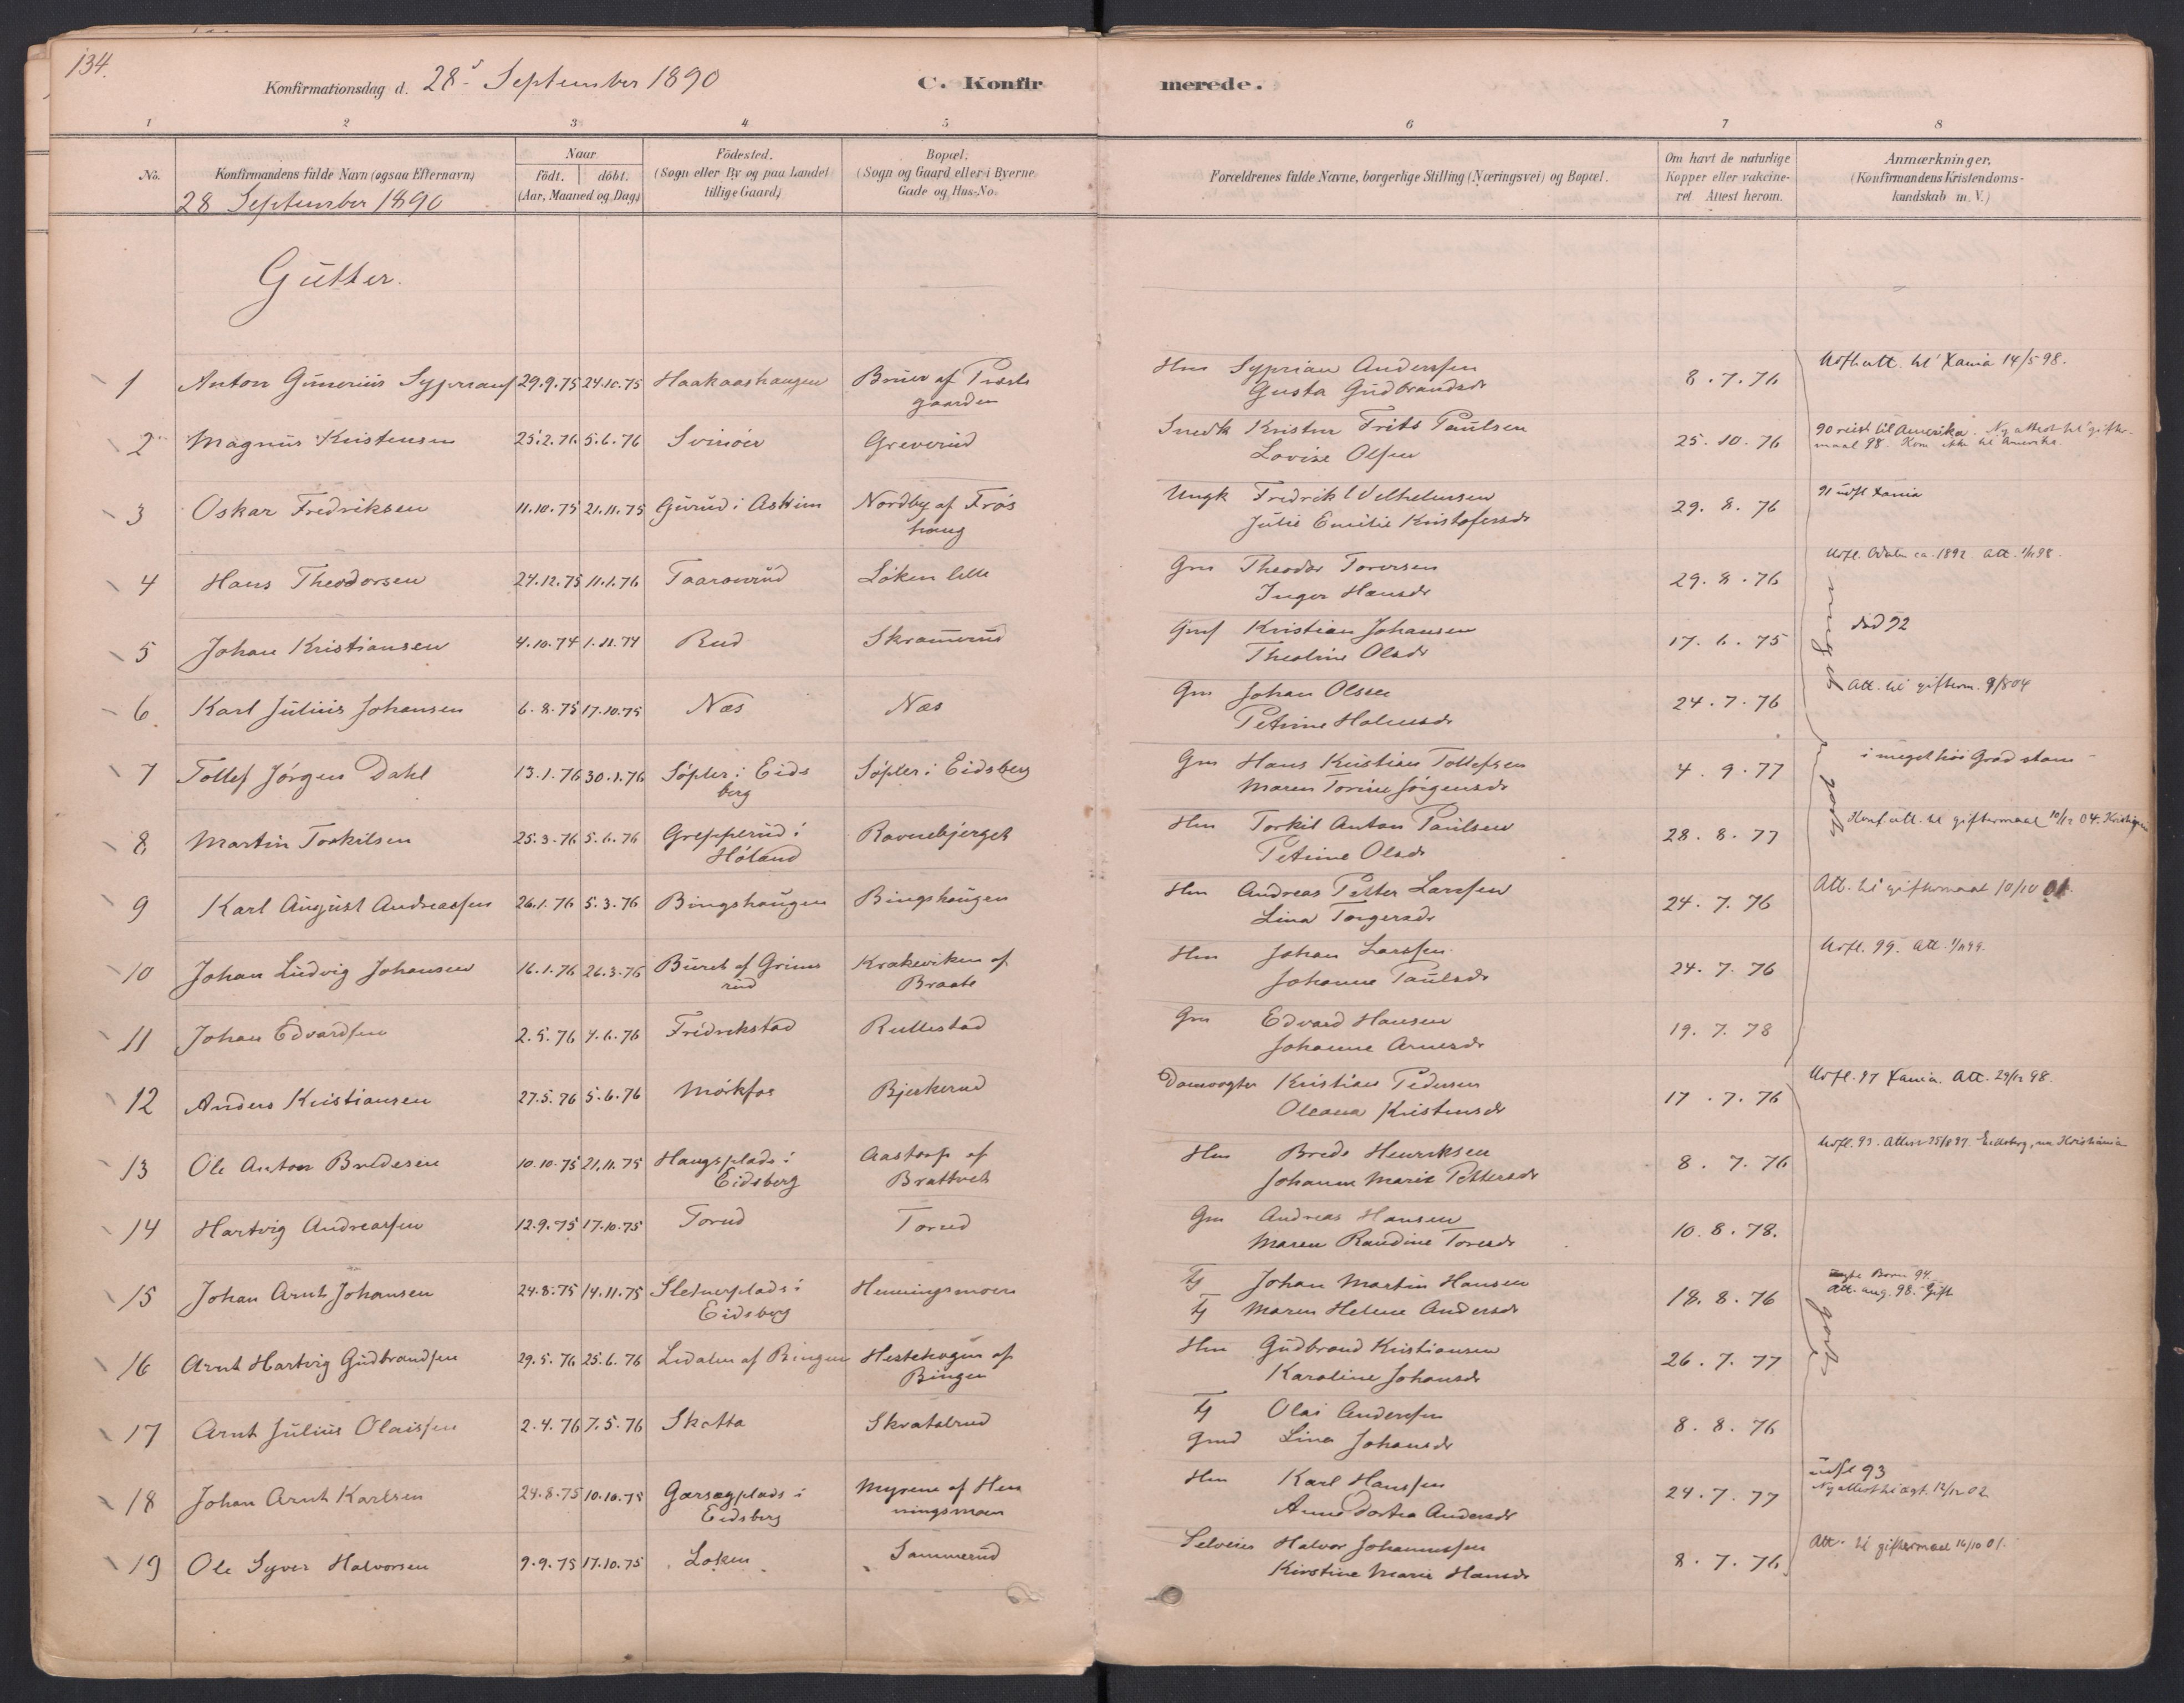 134.
Konfirmationsdag d. 28de September 1890
C. Konfirmerede.
1 2 3 4 5 6 7 8
No.
Konfirmandens fulde Navn (ogsaa Efternavn)
Naar
Födt. döbt.
(Aar, Maaned og Dag)
Födested.
(Sogn eller By og paa Landet
tillige Gaard)
Bopæl.
(Sogn og Gaard eller i Byerne
Gade og Hus-No.
Forældrenes fulde Navne, borgerlige Stilling (Næringsvei) og Bopæl.
Om havt de naturlige
Kopper eller vakcine-
ret Attest herom.
Anmærkninger.
(Konfirmandens Kristendoms-
kundskab m. V.)
28 September 1890
Gutter.
1 Anton Gunerius Syprians 29.9.75 24.10.75 Haakaashaugen Bruer af Præste
gaarden
Hm Syprian Anderssen 8.7.76 Udfl att. til Xania 14/5 98.
Gusta Gudbrandsdr
2 Magnus Kristensen 25.2.76 5.6.76 Svinöen Greverud
Snedk Kristen Frits Paulsen 25.10.76 90 reist til Amerika. Ny attest til gifte-
Lovise Olsen maal 98. Kom ikke til Amerika.
3 Oskar Fredriksen 11.10.75 21.11.75 Gurud i Askim Nordby af Frös
haug
Ungk Fredrik Vilhelmsen 29.8.76 91 udfl Xania
Julie Emilie Kristofersdr
4 Hans Theodorsen 24.12.75 11.1.76 Taaranrud Löken lille
Gm Theodor Torersen 29.8.76 Udfl. ca. 1892 Att.
Inger Hansdr
5 Johan Kristiansen 4.10.74 1.11.74 Rud Skramerud
Kristian Johansen 17.6.75 död 92
Theoline Olsdr
meget
6 Karl Julius Johansen 6.8.75 17.10.75 Næs Næs
Gm Johan Olsen 24.7.76 Att. til gifterm. 9/8 04
Petrine Holmsdr
7 Tollef Jörgen Dahl 13.1.76 30.1.76 Söpler i Eids Söpler i Eidsberg
berg
Gm Hans Kristian Tollefsen 4.9.77 i meget höi Grad stam-
Maren Torine Jörgensdr
godt
8 Martin Torkilsen 25.3.76 5.6.76 Grepperud i Ravnebjerget
Höland
Hm Torkil Anton Paulsen 28.8.77 Konf. att. til giftermaal 10/12 04. Kristiania
Petrine Olsdr
9 Karl August Andreassen 26.1.76 5.3.76 Bingshaugen Bingshaugen
Hm Andreas Petter Larssen 24.7.76 Att. til giftermaal 10/10 01.
Lina Torgersdr
10 Johan Ludvig Johansen 16.1.76 26.3.76 Buret af Grims Krakeviken af
rud Braate
Hm Johan Larssen 24.7.76 Udfl. 99. Att.
Johanne Paulsdr
11 Johan Edvardsen 2.5.76 4.6.76 Fredrikstad Rullestad
Gm Edvard Hansen 19.7.78
Johanne Arnesdr
12 Anders Kristiansen 27.5.76 5.6.76 Mörkfos Bjerkerud
Damvogter Kristian Pedersen 17.7.76 Udfl. 97 Xania. Att. 29/12 98.
Oleana Kristensdr
13 Ole Anton Bredesen 10.10.75 21.11.75 Haugsplads i Aastorp af
Eidsberg Brattvet
Hm Brede Henriksen 8.7.76 Udfl. 93. Attest 25/8 97. Eidsberg, nu Kristiania
Johanne Marie Pettersdr
14 Hartvig Andreassen 12.9.75 17.10.75 Torud Torud
Gm Andreas Hansen 10.8.78.
Maren Randine Toresdr
15 Johan Arnt Johansen 24.8.75 14.11.75 Sletnerplads i Henningsmoen
Eidsberg
Tj Johan Martin Hansen 18.8.76 94.
Tj Maren Helene Andersdr Att. aug. 98. Gift
godt
16 Arnt Hartvig Gudbrandsen 29.5.76 25.6.76 Lidalen af Bingen Hestehagen af
Bingen
Hm Gudbrand Kristiansen 26.7.77
Karoline Johansdr
17 Arnt Julius Olaissen 2.4.76 7.5.76 Skotta Skratalrud
Tj Olai Anderssen 8.8.76
Gmd Lina Johansdr
18 Johan Arnt Karlsen 24.8.75 10.10.75 Garsegplads i Myrene af Hen
Eidsberg ningsmoen
Hm Karl Hanssen 24.7.77 udfl 93
Anne Dortea Andersdr Ny attest til ægt. 12/12 02
19 Ole Syver Halvorsen 9.9.75 17.10.75 Löken Sammerud
Selveier Halvor Johannessen 8.7.76 Att. til giftermaal 16/10 01.
Kirstine Marie Hansdr